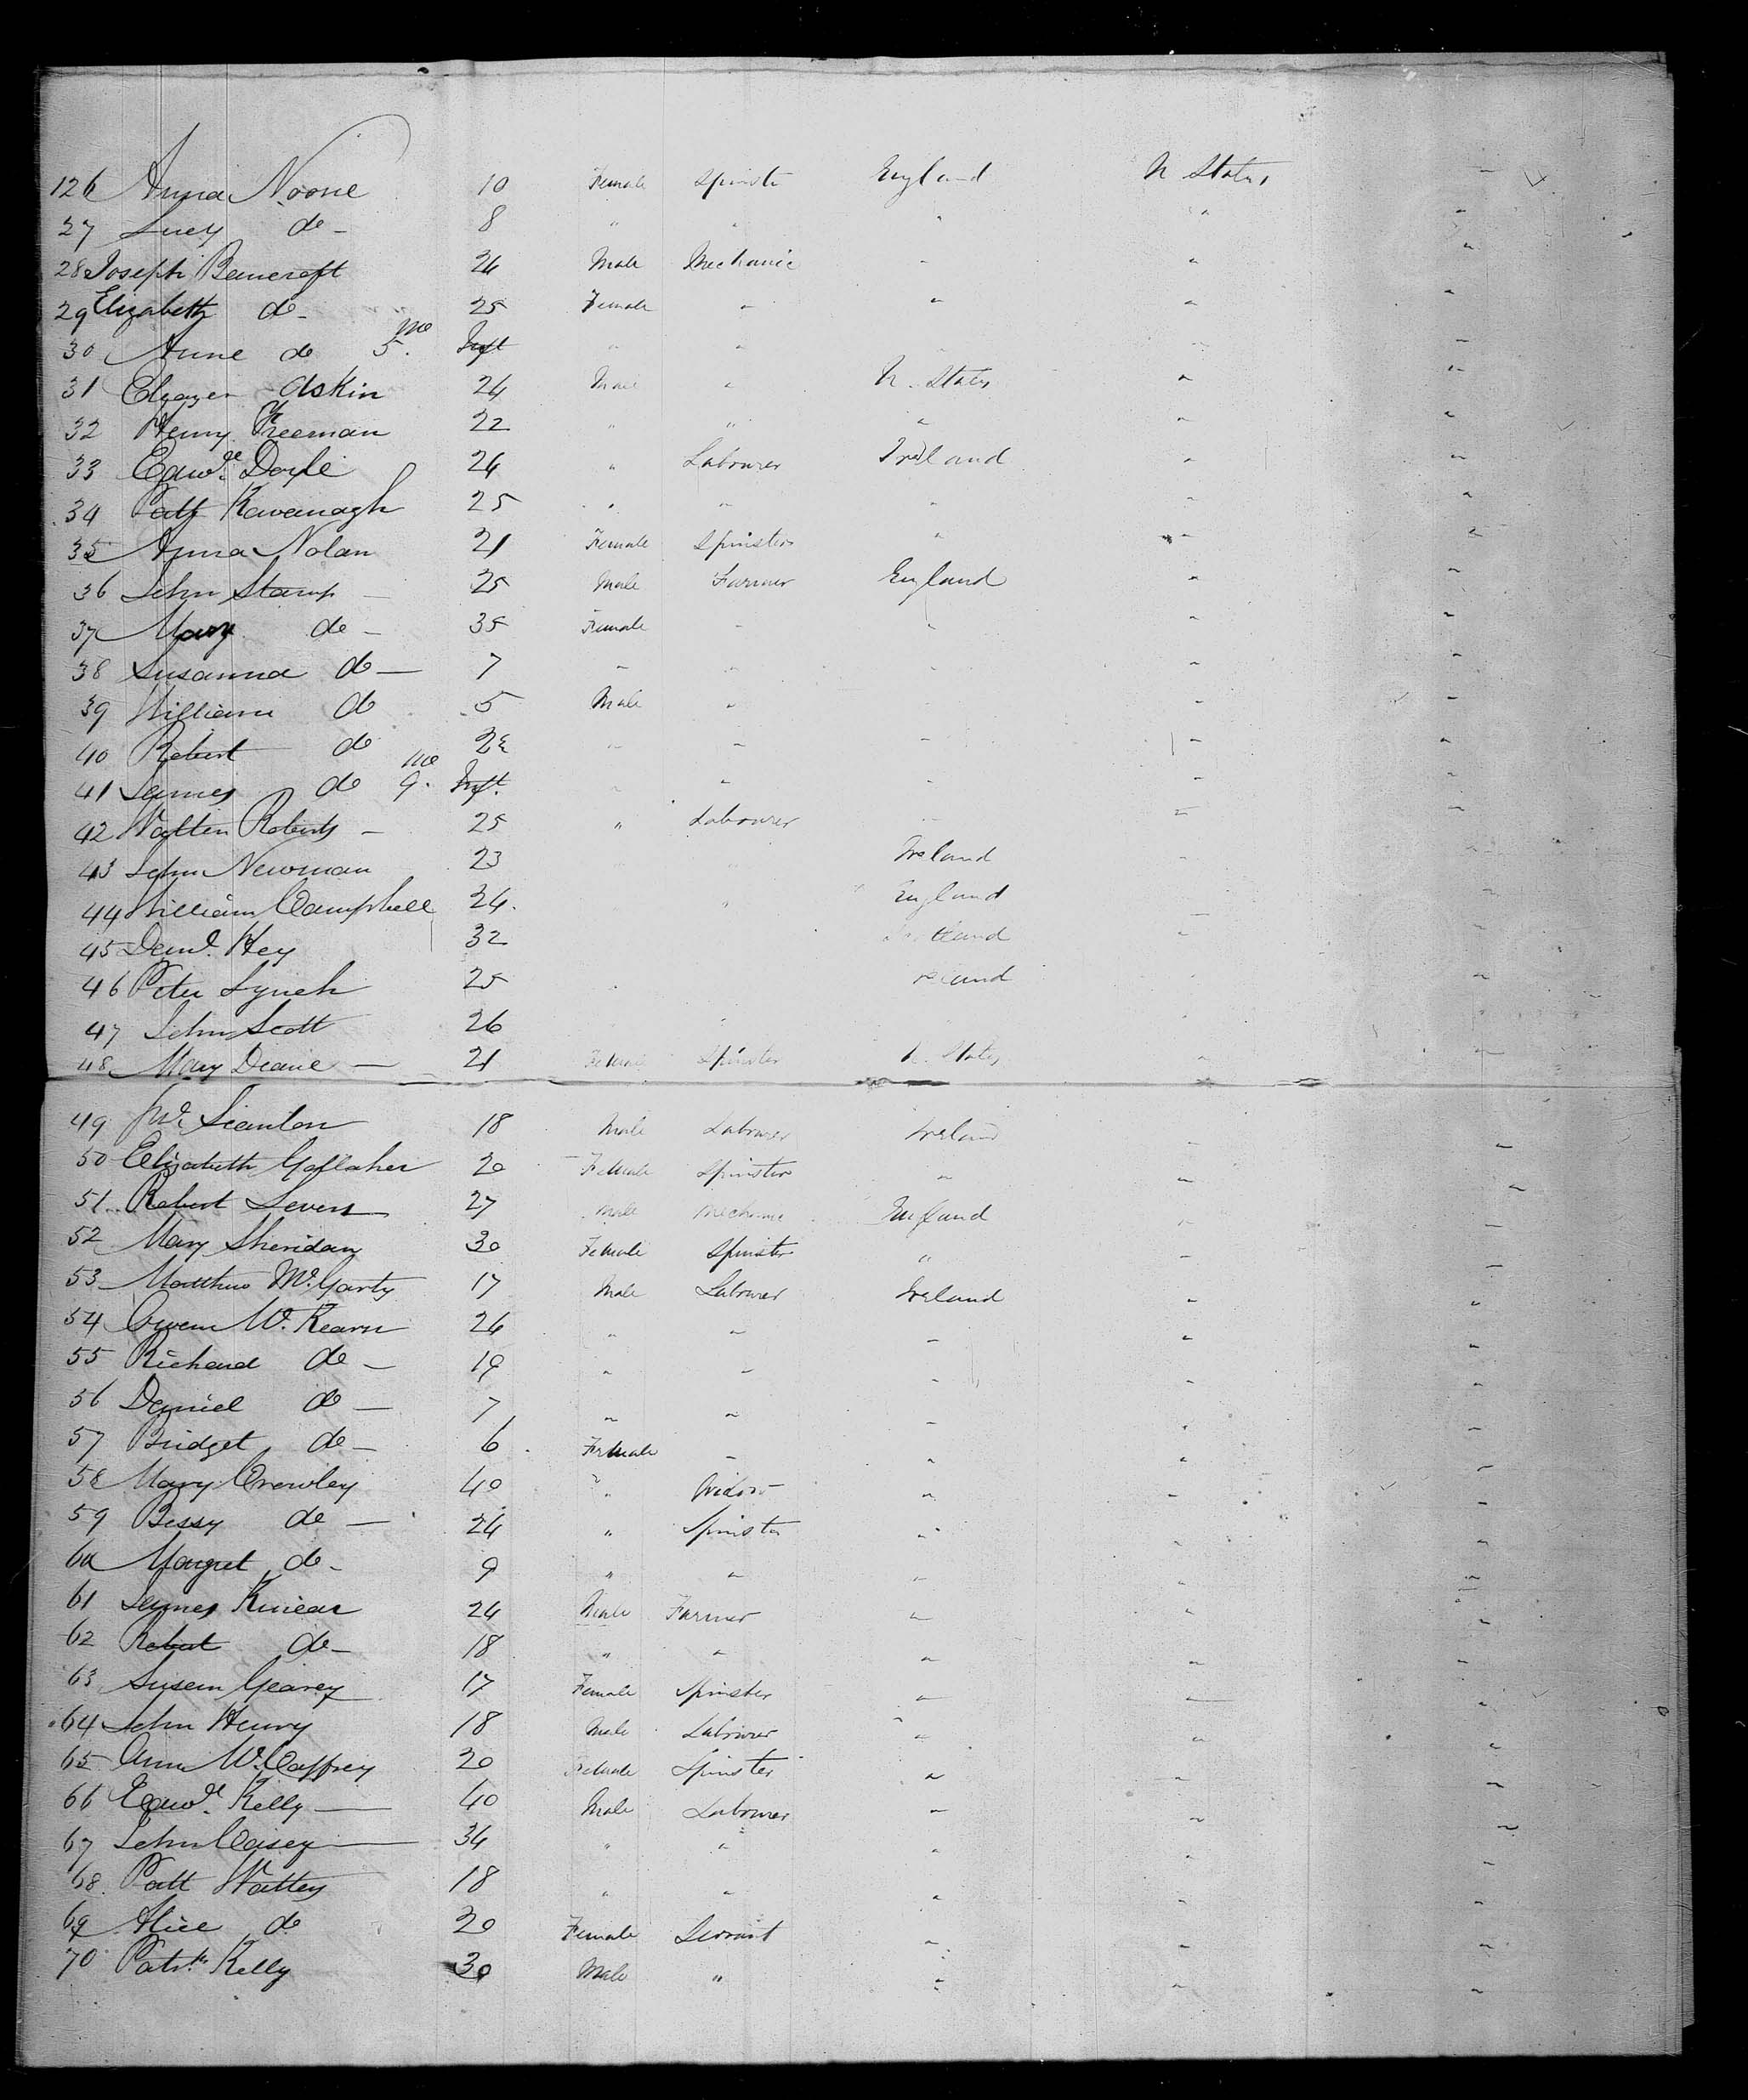 126 Anna Noone 10 Female Spinster England U States -
27 Lucy do - 8 " " " " "
28 Joseph Bancroft 24 Male Mechanic " " "
29 Elizabeth do - 25 Female " " " "
30 Anne do 5 mo Inft " " " " "
31 Askin 24 Male " U. States " "
32 Henry Freeman 22 " " " " "
33 Edwd. Doyle 24 " Labourer Ireland " "
34 Patk Kavanagh 25 " " " " "
35 Anna Nolan 21 Female Spinster " " "
36 John Stamp - 25 Male Farmer England " "
37 Mary do - 35 Female " " " "
38 Susanna do — 7 " " " " "
39 William do 5 Male " " " "
40 Robert do " " " " "
41 James do 9 mo Inft. " " " " "
42 Roberts - 25 " Labourer " " "
43 John Newman 23 " " Ireland " "
44 William Campbell 24. " England " "
45 Hey 32 "
46 Peter Lynch 25 " "
47 John Scott 26 "
48 Mary Deane — 21 Female Spinster U. States " "
49 Scanlon 18 Male Labourer Ireland " "
50 Elizabeth Gallaher 20 Female Spinster " " "
51 Robert Severs 27 Male Mechanic England " "
52 Mary Sheridan 30 Female Spinster " " "
53 Matthew McGarty 17 Male Labourer Ireland " "
54 Owen McKearn 24 " " " " "
55 Richard do - 19 " " " " "
56 Daniel do — 7 " " " " "
57 Bridget do - 6 Female " " " "
58 Mary Crowley 40 " Widow " " "
59 Bessy do — 24 " Spinster " " "
60 Margret do - 9 " " " " "
61 James Kinear 24 Male Farmer " " "
62 Robert do - 18 " " " " "
63 Susan Gearey 17 Female Spinster " " "
64 John Henry 18 Male Labourer " " "
65 Ann McCaffrey 20 Female Spinster " " "
66 Edwd. Kelly — 40 Male Labourer " " "
67 John Casey — 34 " " " " "
68 Patt 18 " " " " "
69 Alice do 20 Female Servant " " "
70 Patk. Kelly 30 Male " " " "